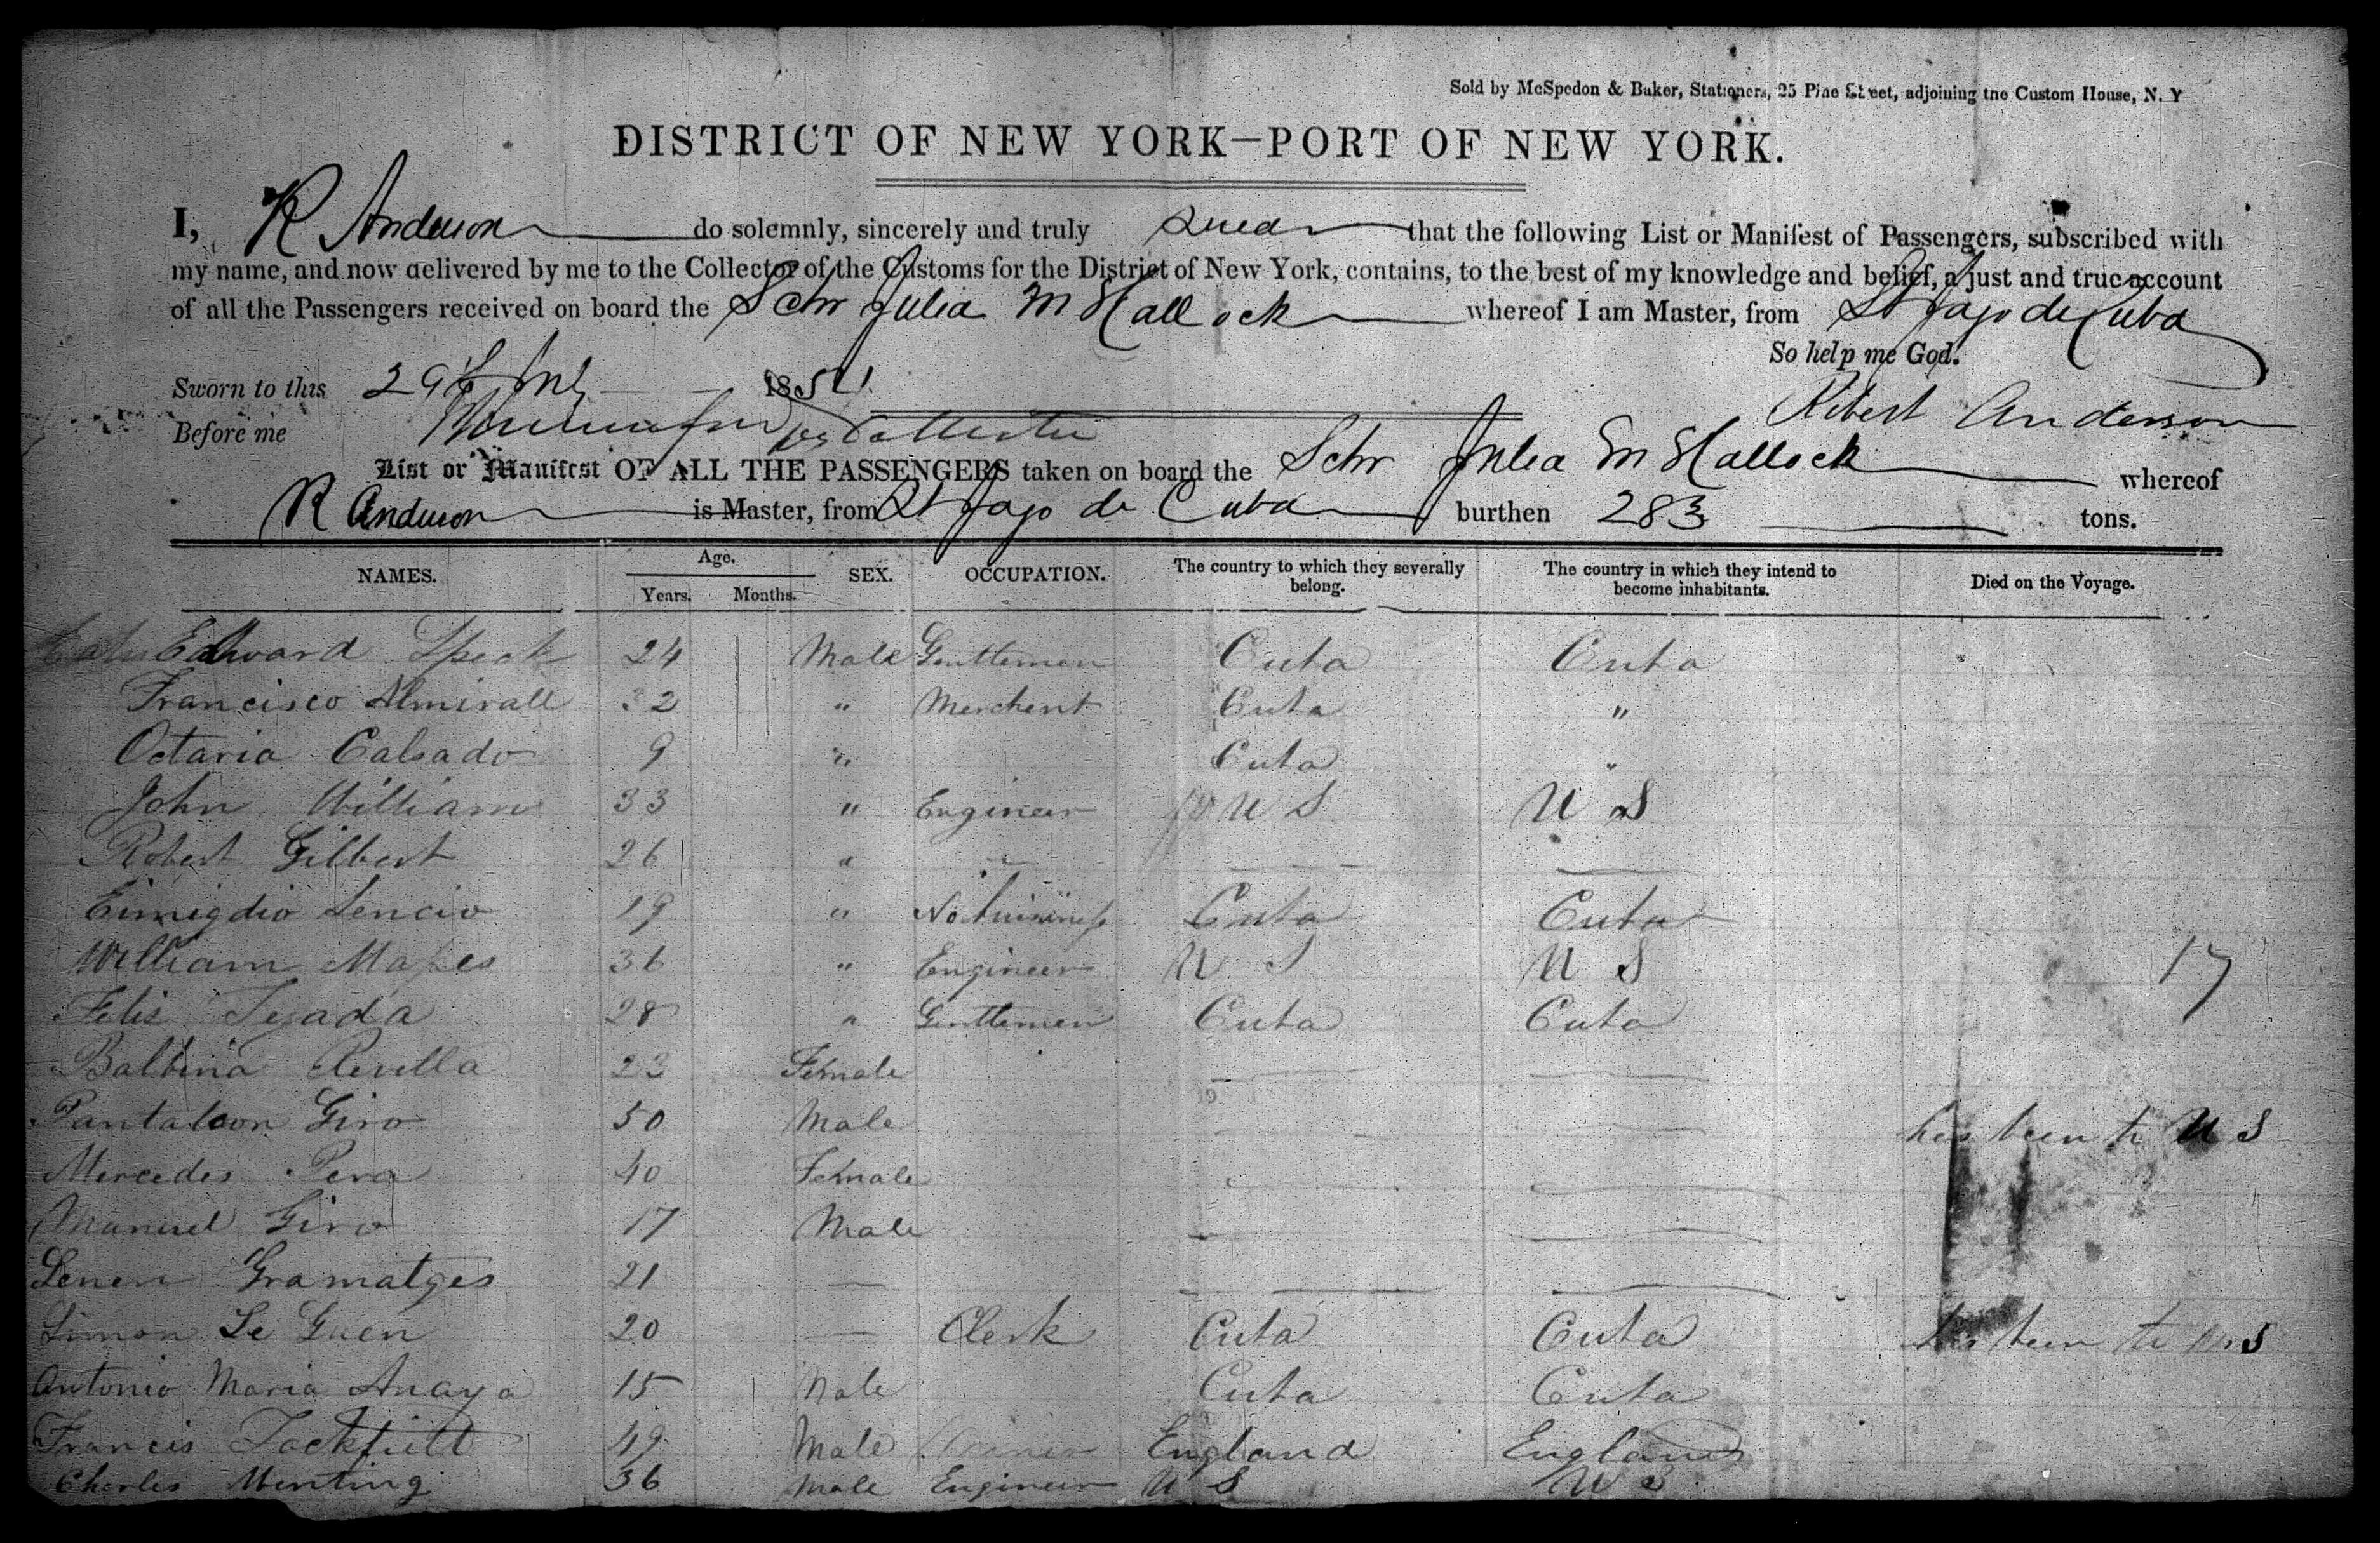 Sold by McSpedon & Baker, Stationers, 25 Pine Street, adjoining the Custom House, N. Y
DISTRICT OF NEW YORK—PORT OF NEW YORK.
I, R Anderson do solemnly, sincerely and truly swear that the following List or Manifest of Passengers, subscribed with
my name, and now delivered by me to the Collector of the Customs for the District of New York, contains, to the best of my knowledge and belief, a just and true account
of all the Passengers received on board the Schr Julia M Hallock whereof I am Master, from St Jago de Cuba
So help me God.
Sworn to this 29th 185
Robert Anderson
Before me
List or Manifest OF ALL THE PASSENGERS taken on board the Schr Julia M Hallock whereof
R Anderson is Master, from St Jago de Cuba burthen 283 tons.
NAMES. Age. Years. Months. SEX. OCCUPATION. The country to which they severally belong. The country in which they intend to become inhabitants. Died on the Voyage.
Edward Speck 24 Male Gentlemen Cuba Cuba
Francisco Almirall 32 " Merchent Cuba "
Octaria Calsado 9 " Cuba "
John William 33 " Engineer U S U S
Robert Gilbert 26 " — — —
Eimigdio Sencio 19 " No business Cuba Cuba
William Mapes 36 " Engineer U S U S 17
Felis Tejada 28 " Gentlemen Cuba Cuba
Balbina Revilla 23 Female — —
Pantaleon Giro 50 Male — — has been to U S
Mercedes Pera 40 Female — —
Manuel Giro 17 Male — —
Lenen Gramatges 21 — — —
Simon Le Guen 20 — Clerk Cuba Cuba has been to U S
Antonio Maria Anaya 15 Male Cuba Cuba
Francis 49 Male England England
Charles Menting 36 Male Engineer U S U S